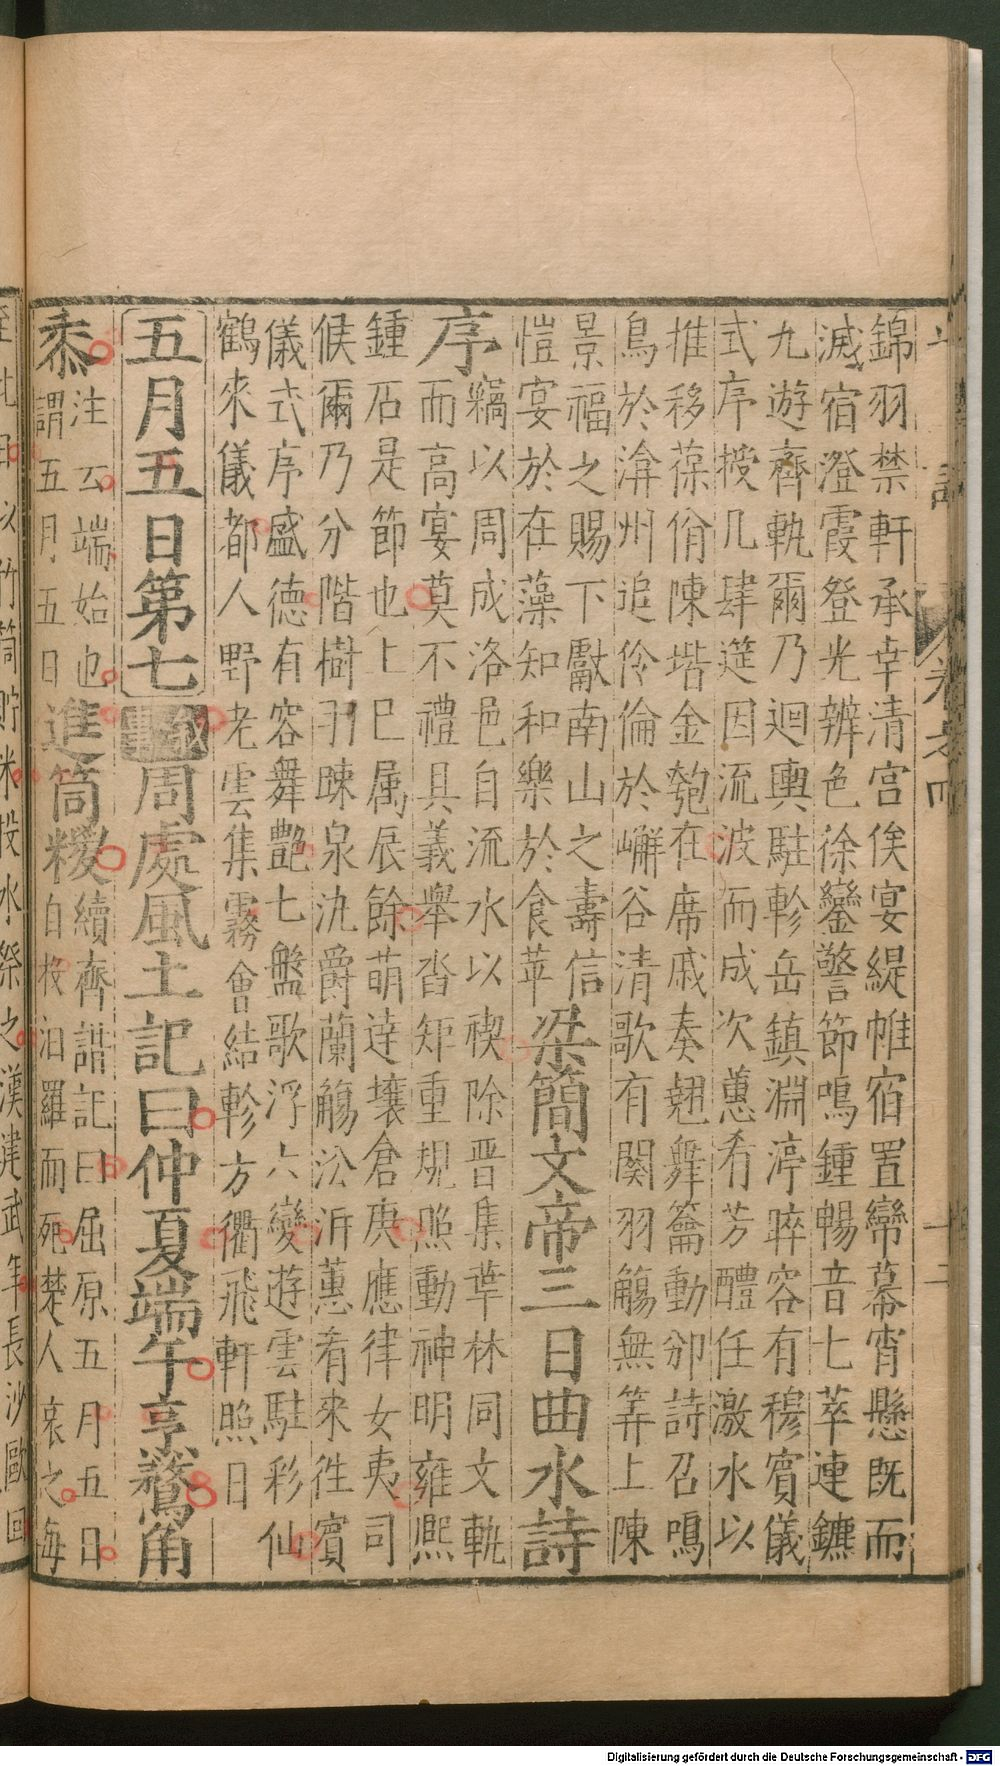 錦羽禁軒承幸清宮俟宴緹帷宿置㡩幕宵懸既而
滅宿澄霞登光辨色徐鑾警節鳴鍾暢音七萃連鑣
九遊齊軌爾乃迴輿駐軫岳鎮淵渟睟容有穆賓儀
式序授几肆筵因流波而成次蕙肴芳醴任激水以
推移葆佾陳堦金匏在席戚奏翹舞籥動邠詩召鳴
鳥於弇州追伶倫於嶰谷清歌有闋羽觴無筭上陳
景福之賜下獻南山之壽信
愷宴於在藻知和樂於食苹
梁簡文帝三日曲水詩
序
竊以周成洛邑自流水以禊除晋集華林同文軌
而高宴莫不禮具義舉沓矩重規昭動神明雍熙
鍾石是節也上巳属辰餘萌達壤倉庚應律女夷司
候爾乃分階樹羽疎泉泛爵蘭觴沿泝蕙肴來徃賓
儀式序盛德有容舞艷七盤歌浮六變遊雲駐彩仙
鶴來儀都人野老雲集霧會結軫方衢飛軒照日
五月五日第七
周處風土記曰仲夏端午亨鶩角
黍
注云端始也
謂五月五日
進筒糉
續齊諧記曰屈原五月五日
自投汨羅而死楚人哀之每
以竹筒貯米投水祭之漢建武年長沙歐回